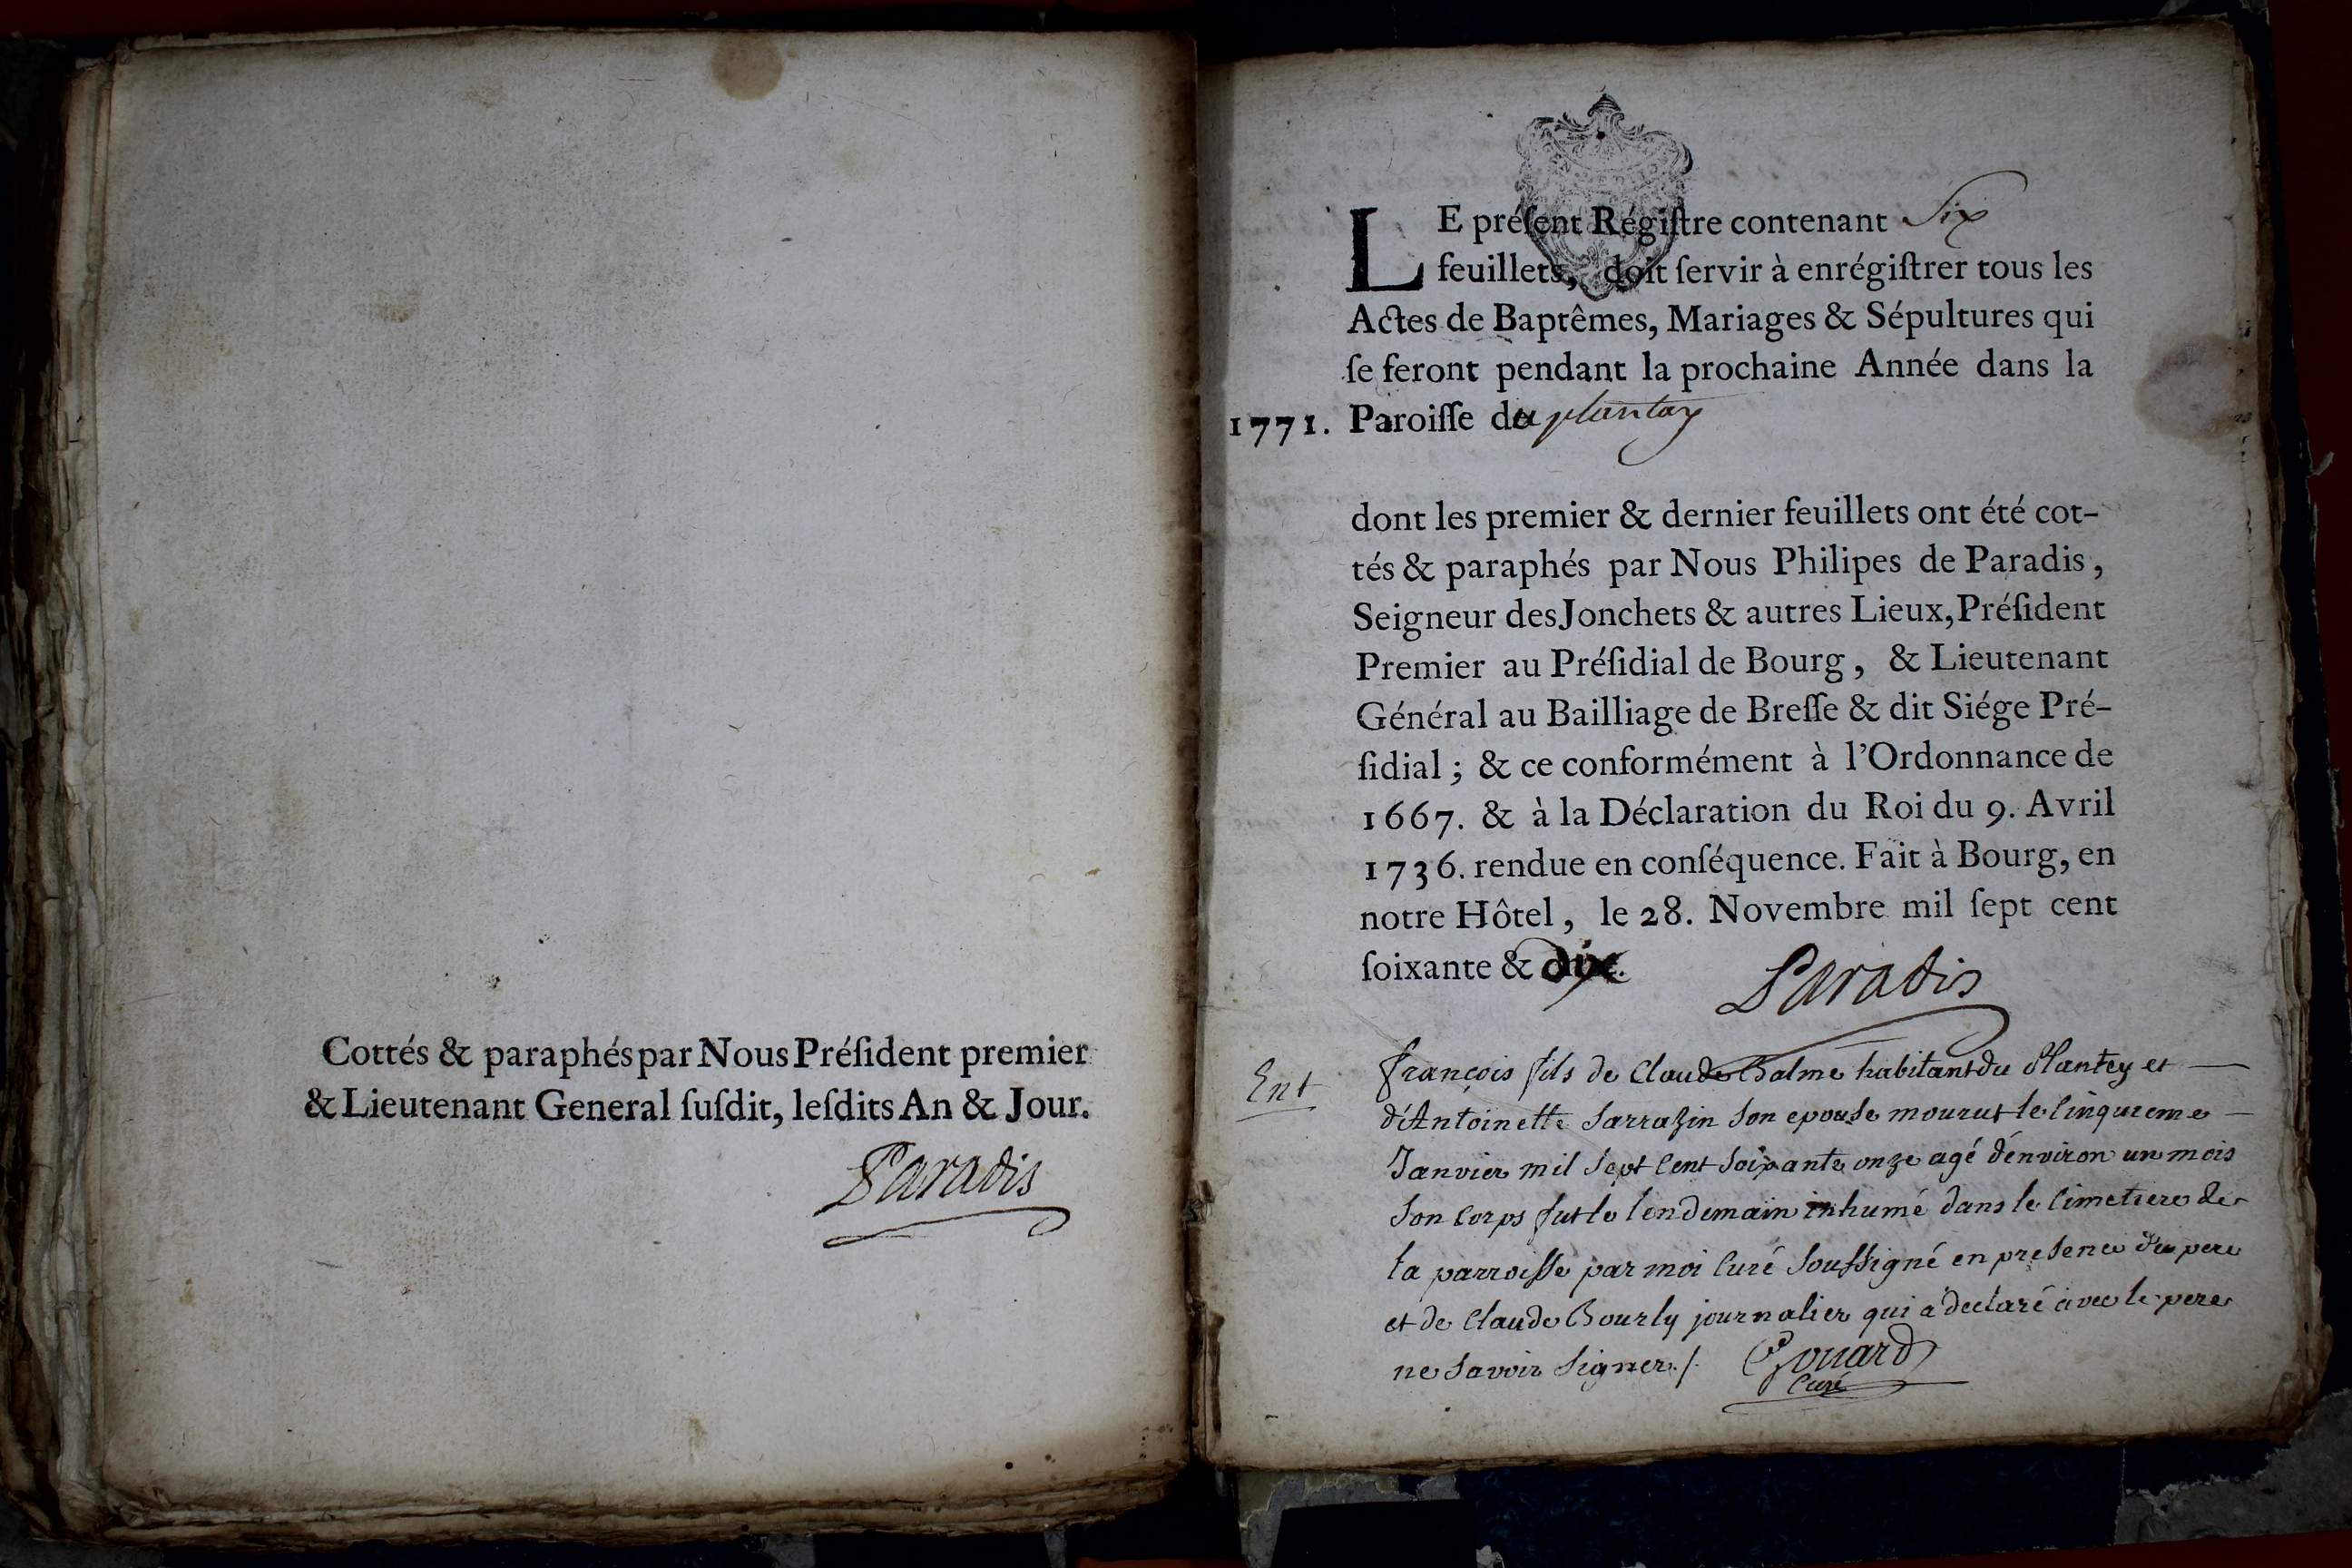 Cottés & paraphés par Nous Préſident premier
& Lieutenant General ſuſdit, leſdits An & Jour.
Paradis
LE préſent Régiſtre contenant Six
feuillets, doit ſervir à enrégiſtrer tous les
Actes de Baptêmes, Mariages & Sépultures qui
ſe feront pendant la prochaine Année dans la
1771. Paroiſſe du plantay
dont les premier & dernier feuillets ont été cot-
tés & paraphés par Nous Philipes de Paradis,
Seigneur des Jonchets & autres Lieux, Préſident
Premier au Préſidial de Bourg, & Lieutenant
Général au Bailliage de Breſſe & dit Siége Pré-
ſidial; & ce conformément à l'Ordonnance de
1667. & à la Déclaration du Roi du 9. Avril
1736. rendue en conſéquence. Fait à Bourg, en
notre Hôtel, le 28. Novembre mil ſept cent
ſoixante & dix.
Paradis
Ent françois fils de Claude Balme habitant du Plantey et
d'Antoinette Sarrazin son epouse mourut le Cinquieme
Janvier mil sept Cent soixante onze agé d'environ un mois
son Corps fut le lendemain inhumé dans le Cimetiere de
la parroisse par moi Curé soussigné en presence du pere
et de Claude Bourly journalier qui a declaré avec le pere
ne savoir signer./.
Gouard
Curé